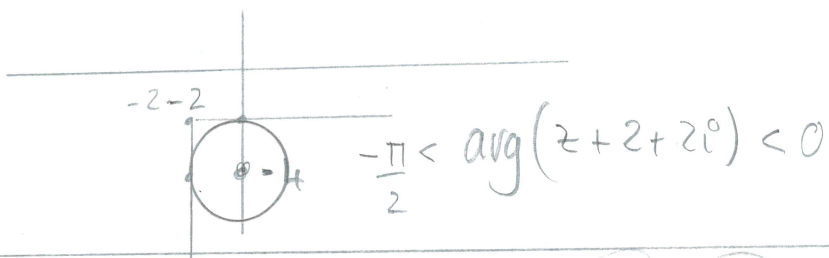 -2-2
-4
-π/2 < avg(z+2+2i) < 0